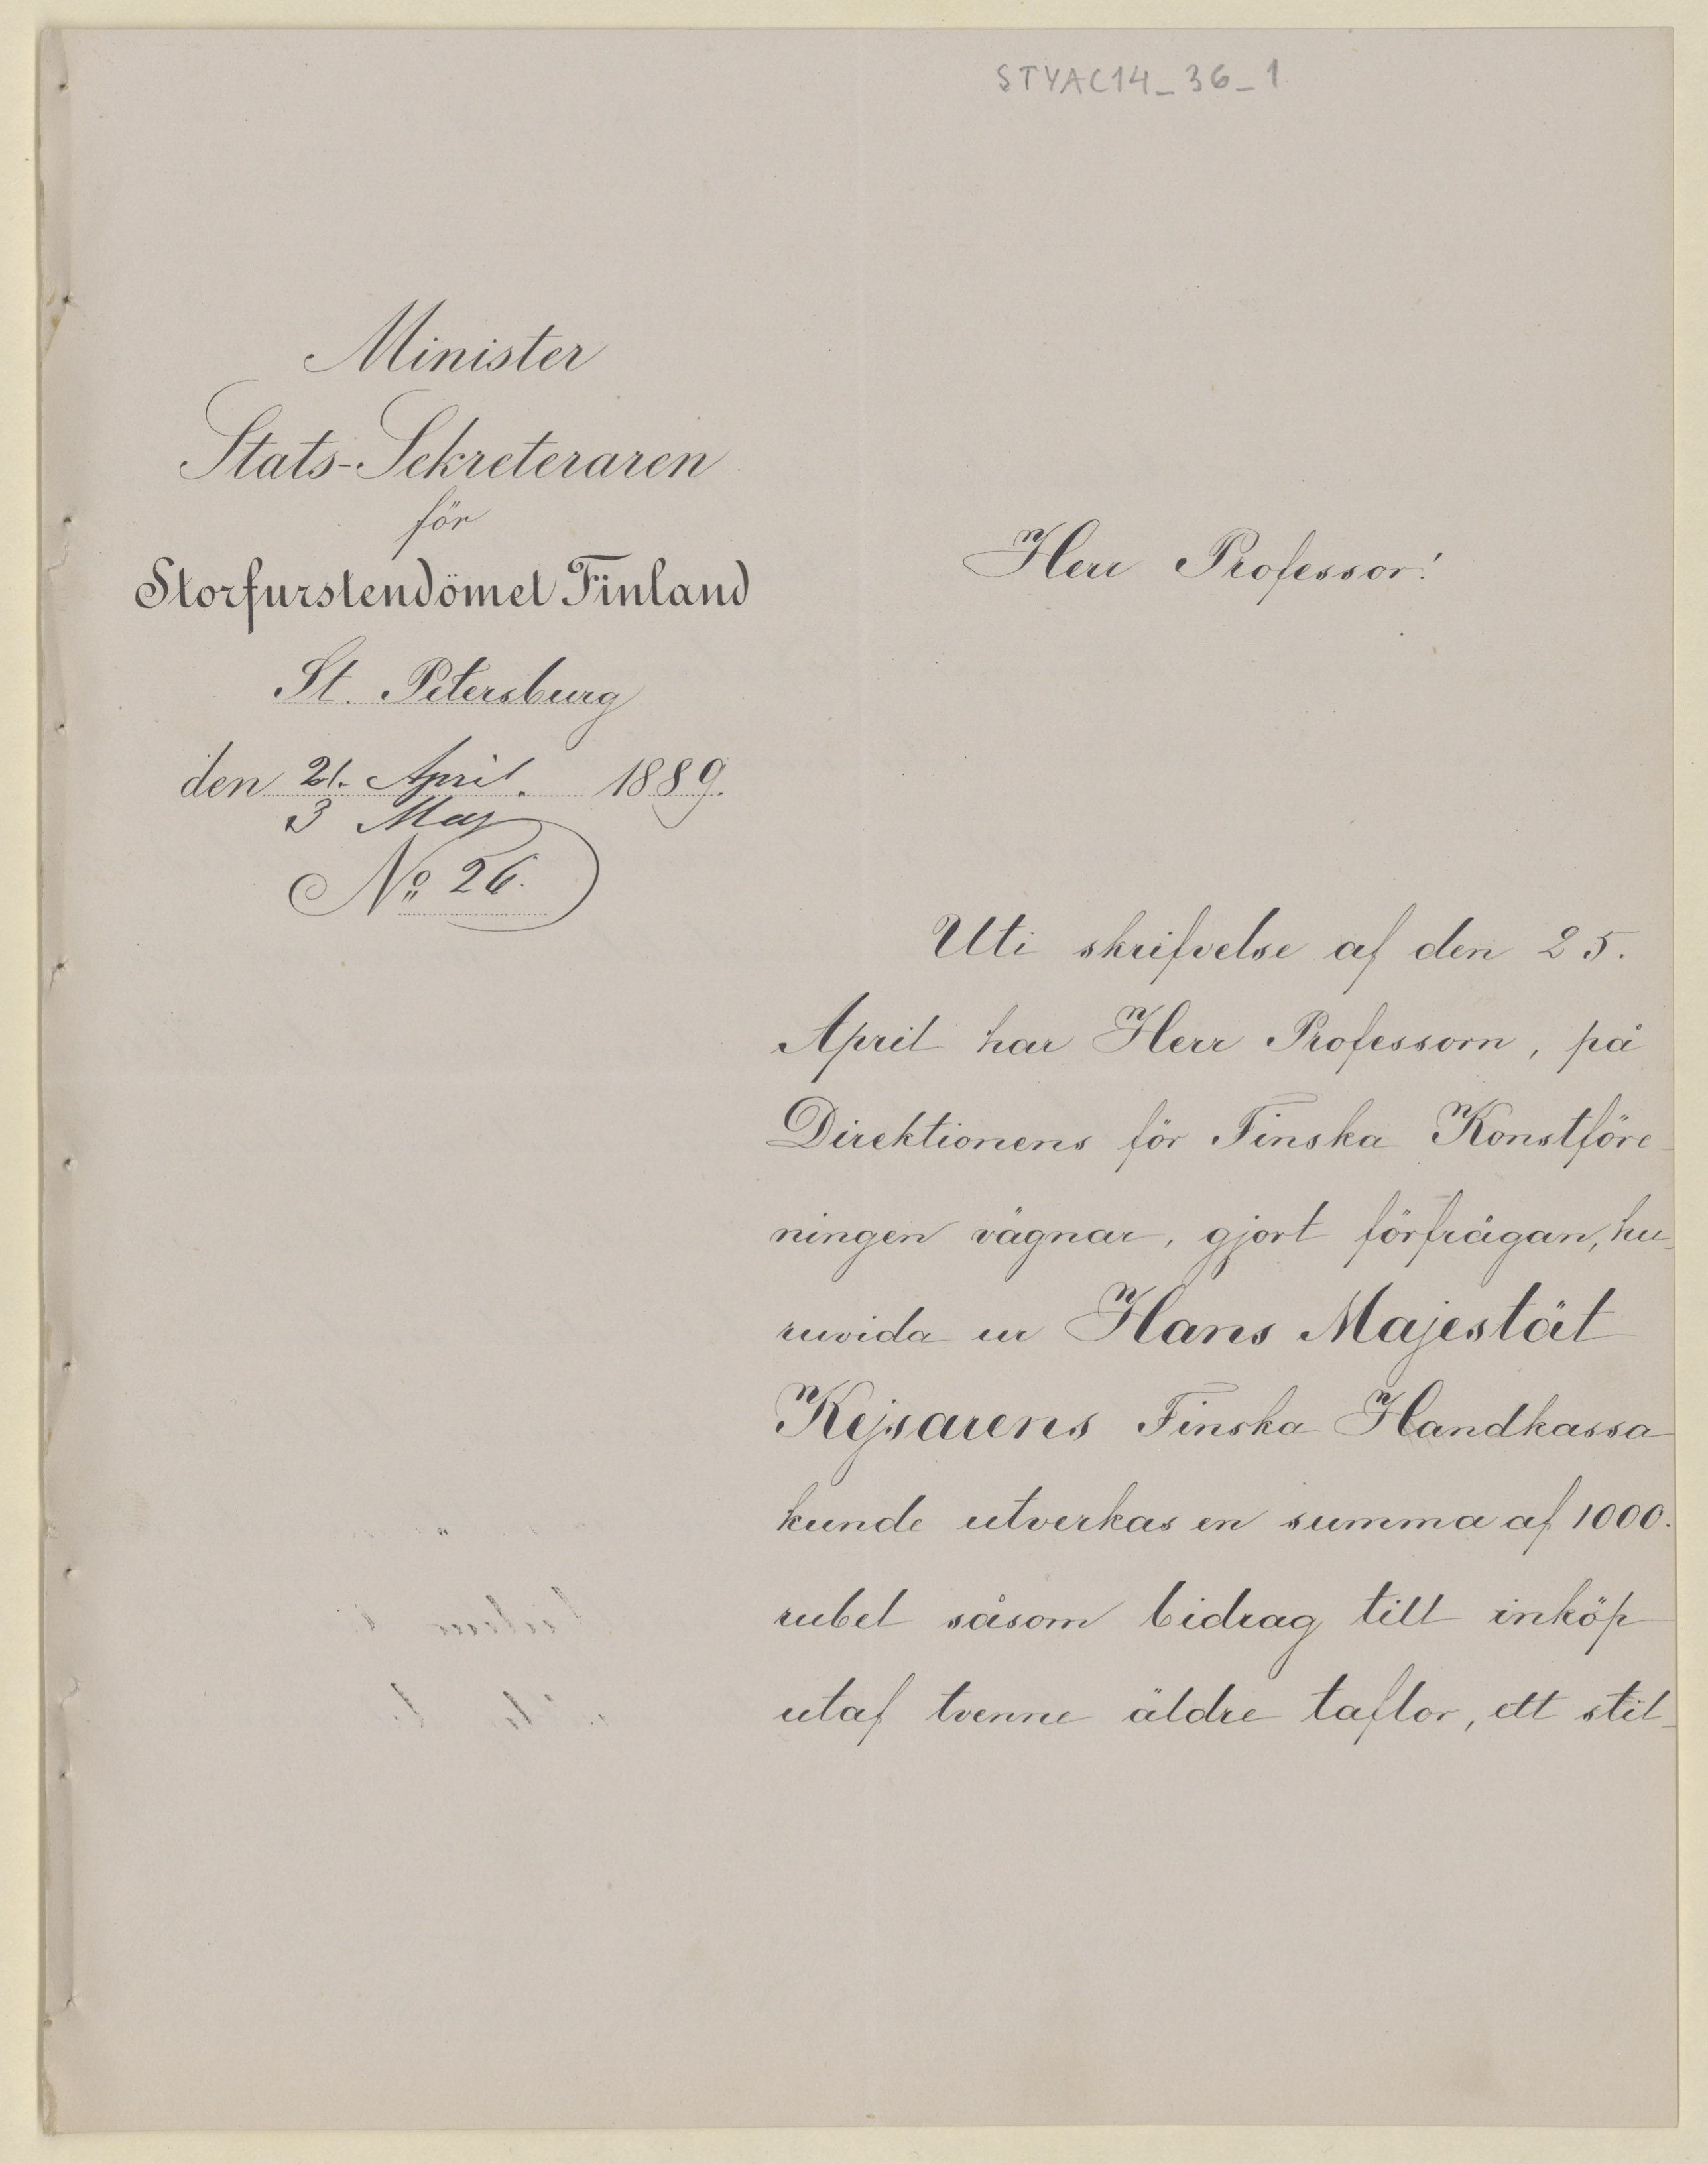 STYAC14_36_1
Minister
Stats-Sekreteraren
för
Storfurstendömet Finland
St. Petersburg
den 21. April. 1889.
3 Maj
No 26.
Herr Professor!
Uti skrifvelse af den 25.
April har Herr Professorn, på
Direktionens för Finska Konstföre-
ningen vägnar, gjort förfrågan, hu-
ruvida ur Hans Majestät
Kejsarens Finska Handkassa
kunde utverkas en summa af 1000.
rubel såsom bidrag till inköp
utaf tvenne äldre taflor, ett stil-